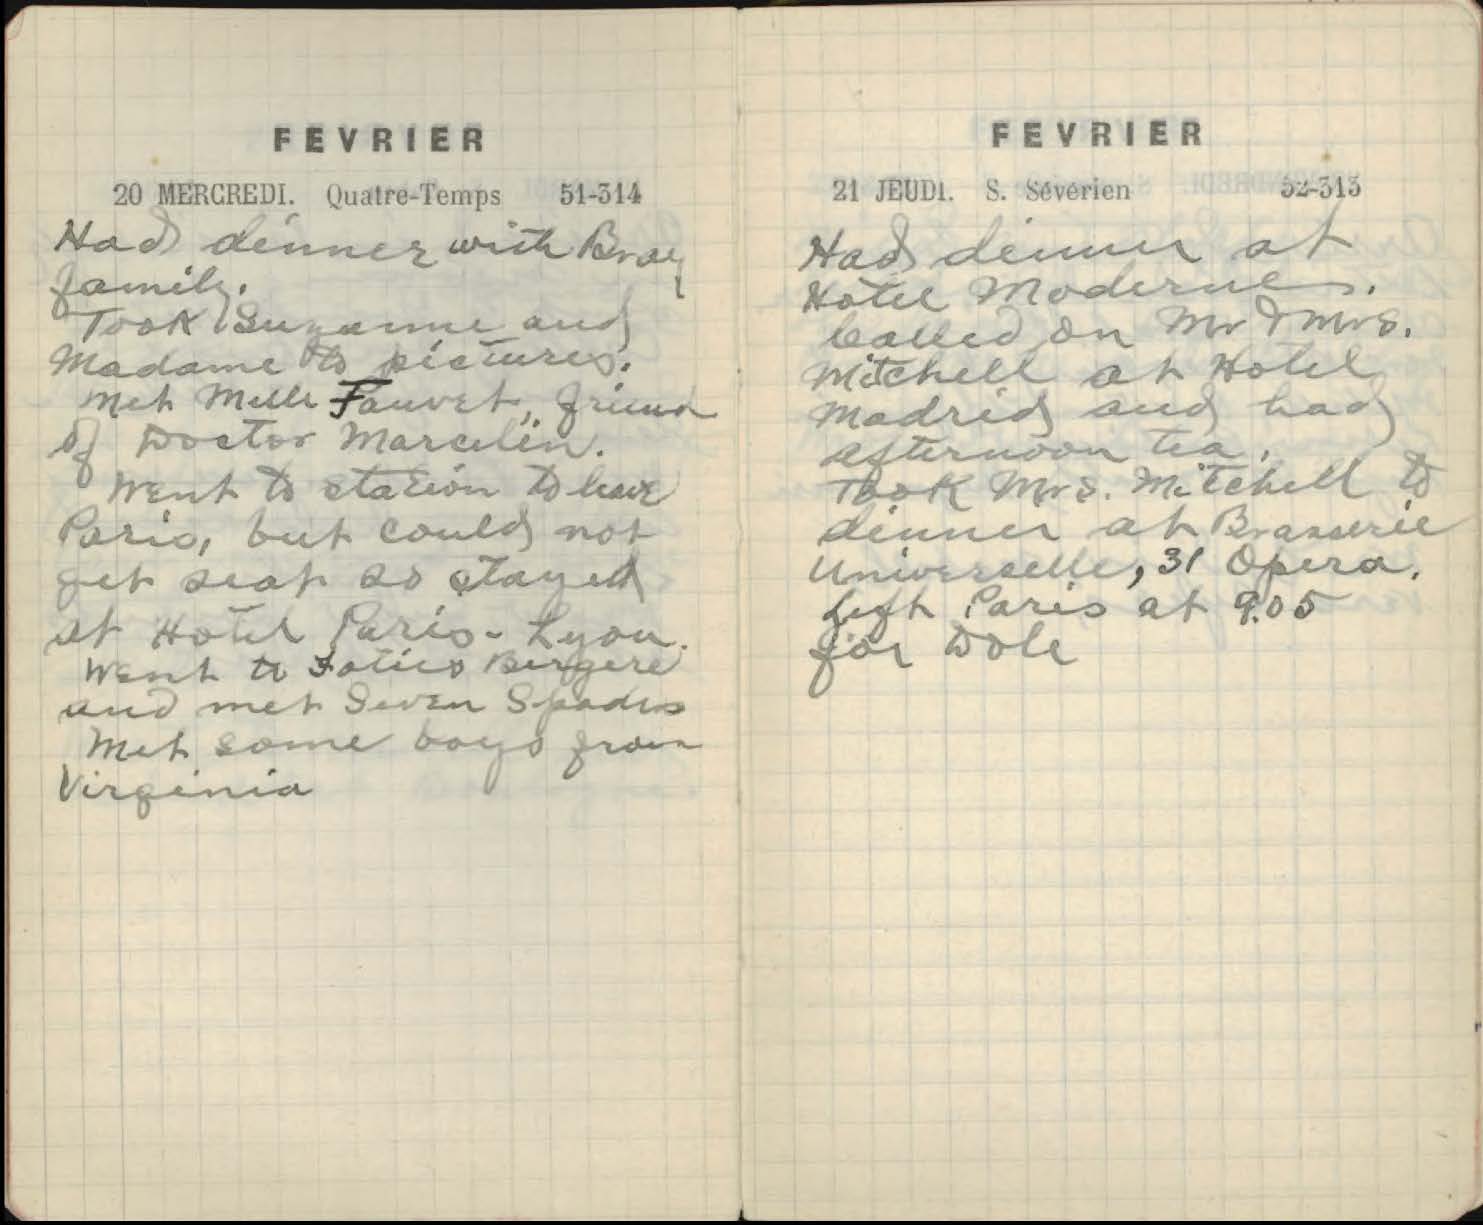 FEVRIER
20 MERCREDI. Quatre-Temps 51-314
Had dinner with Bray
family.
Took Suzanne and
Madame to pictures.
Met Melle Fauvet, friend
of Doctor Marcelin.
Went to station to leave
Paris, but could not
get seat so stayed
at Hotel Paris-Lyon.
Went to Folies Bergere
and met Seven Spades
Met some boys from
Virginia
FEVRIER
21 JEUDI. S. Sévérien 52-315
Had dinner at
Hotel Moderne.
Called on Mr & Mrs.
Mitchell at Hotel
Madrid and had
afternoon tea.
Took Mrs. Mitchell to
dinner at Brasserie
Universelle, 31 Opera.
Left Paris at 9.05
for Dole